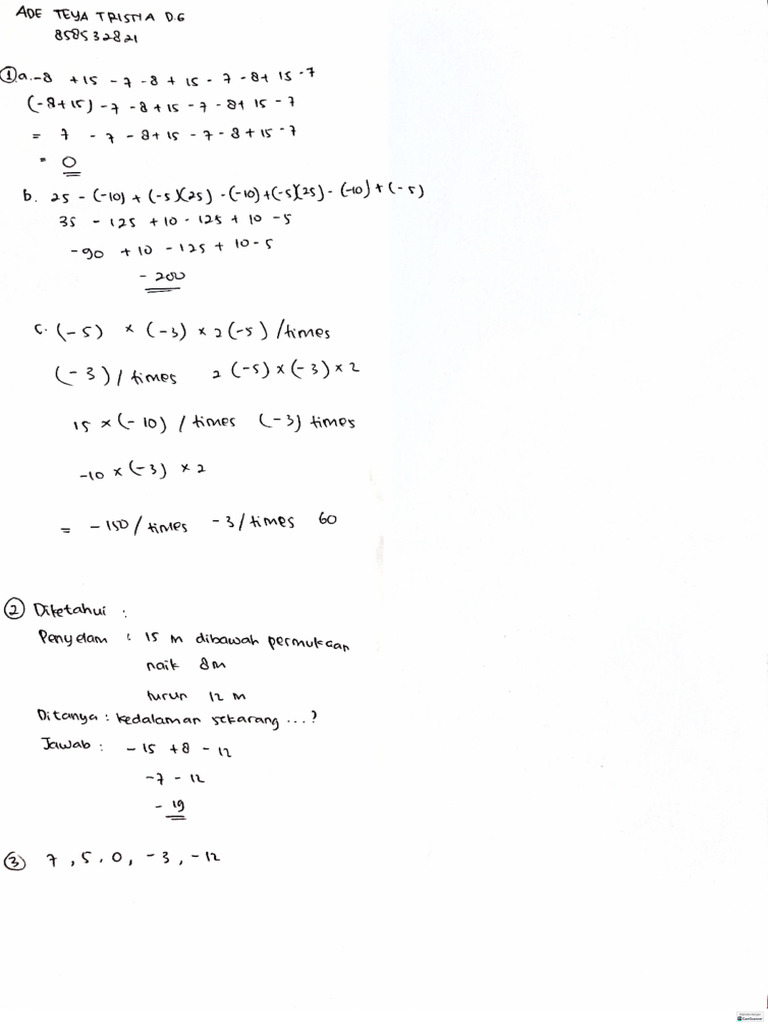 ADE TEYA TRISTIA D.G
858532821
① a. -8 + 15 - 7 - 8 + 15 - 7 - 8 + 15 - 7
(-8 + 15) - 7 - 8 + 15 - 7 - 8 + 15 - 7
= 7 - 7 - 8 + 15 - 7 - 8 + 15 - 7
= 0
b. 25 - (-10) + (-5)(25) - (-10) + (-5)(25) - (-10) + (-5)
35 - 125 + 10 - 125 + 10 - 5
-90 + 10 - 125 + 10 - 5
- 200
c. (-5) × (-3) × 2 (-5) /times
(-3) / times 2 (-5) × (-3) × 2
15 × (-10) / times (-3) times
-10 × (-3) × 2
= -150 / times -3 / times 60
② Diketahui :
Penyelam : 15 m dibawah permukaan
naik 8m
turun 12 m
Ditanya : kedalaman sekarang ... ?
Jawab : -15 + 8 - 12
-7 - 12
- 19
③ 7 , 5 , 0 , -3 , -12
CamScanner